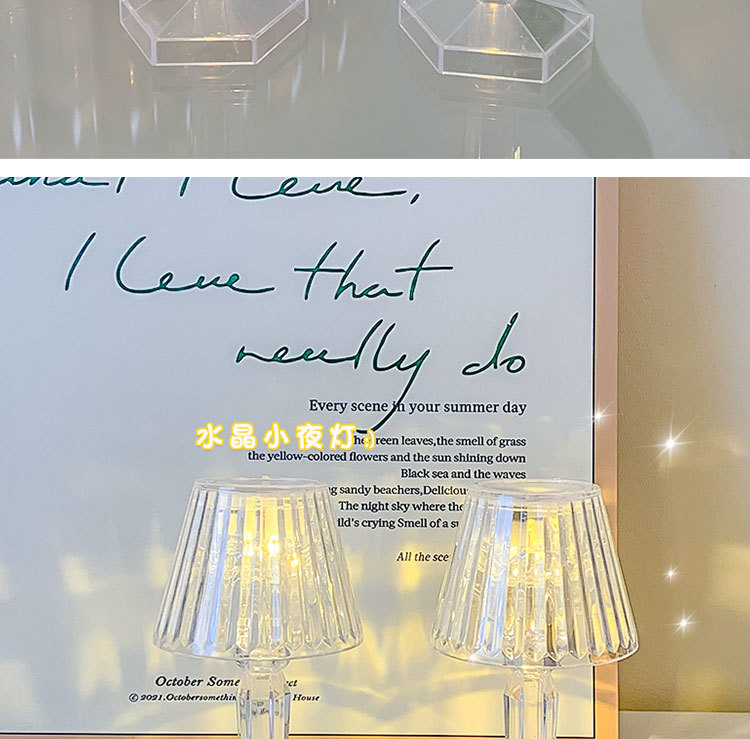 I leve,
I leve that
really do
Every scene in your summer day
水晶小夜灯:)
green leaves,the smell of grass
the yellow-colored flowers and the sun shining down
Black sea and the waves
sandy beachers,
The night sky where
crying Smell of a
All the
October
© 2021. House